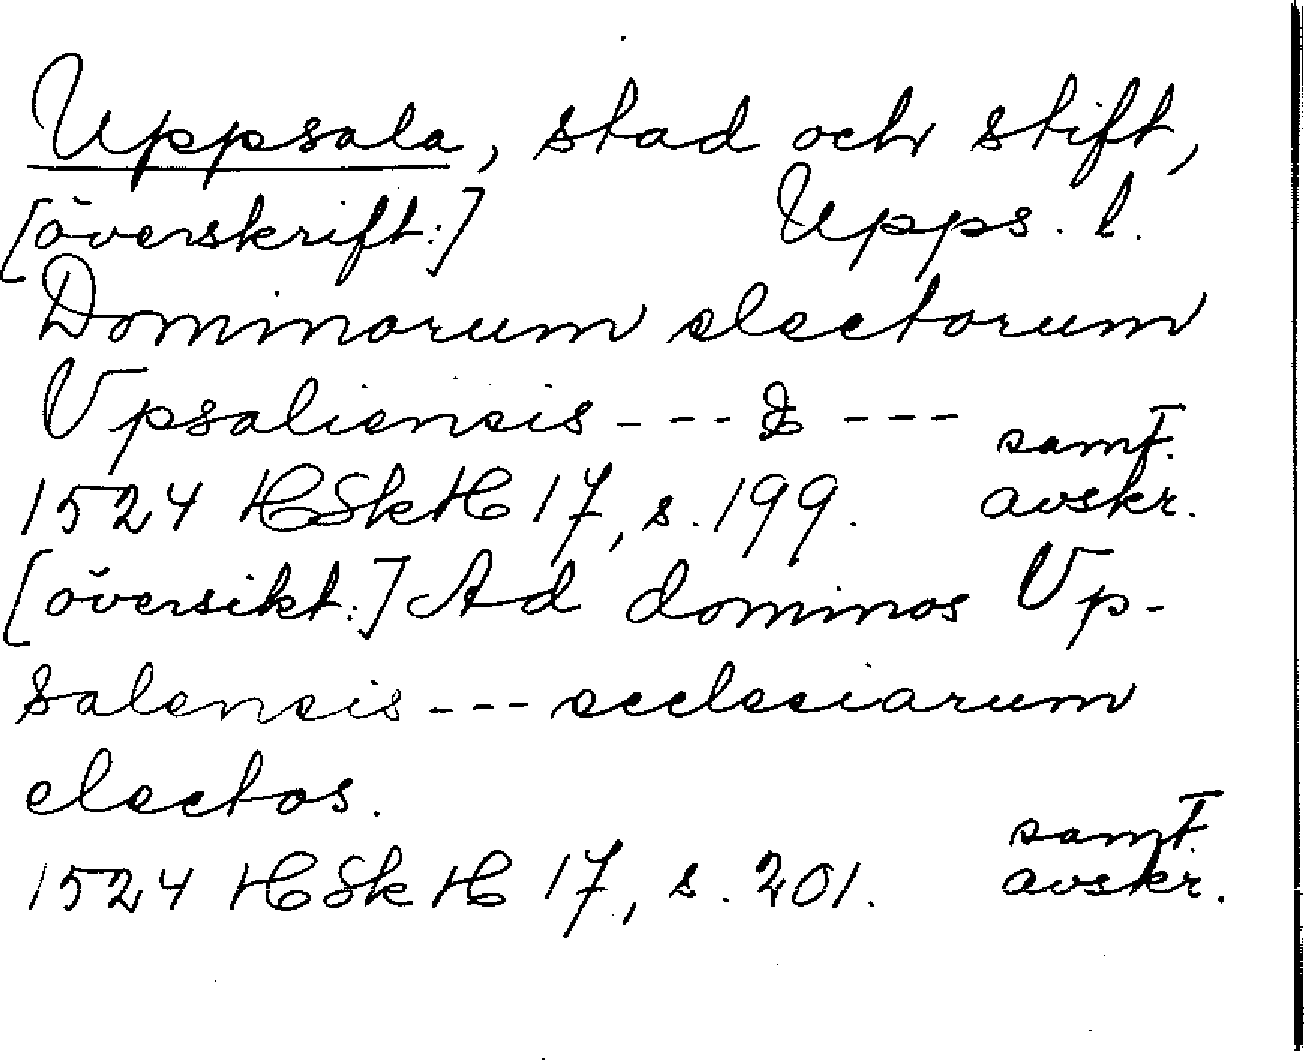 Uppsala, stad och stift,
[överskrift:] Upps. l.
Dominorum electorum
Vpsaliensis --- & ---
samt. avskr.
1524 HSkH 17, s. 199.
[översikt:] Ad dominos Vp-
salensis --- ecclesiarum
electos.
samt. avskr.
1524 HSkH 17, s. 201.